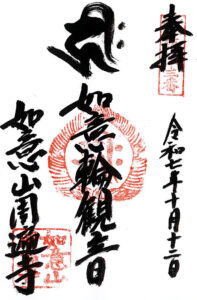 奉拝
令和七年十月十二日
如意輪観音
如意山円通寺
如意山